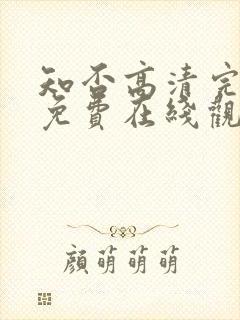 知否高清完
免費在綫觀
顏萌萌萌